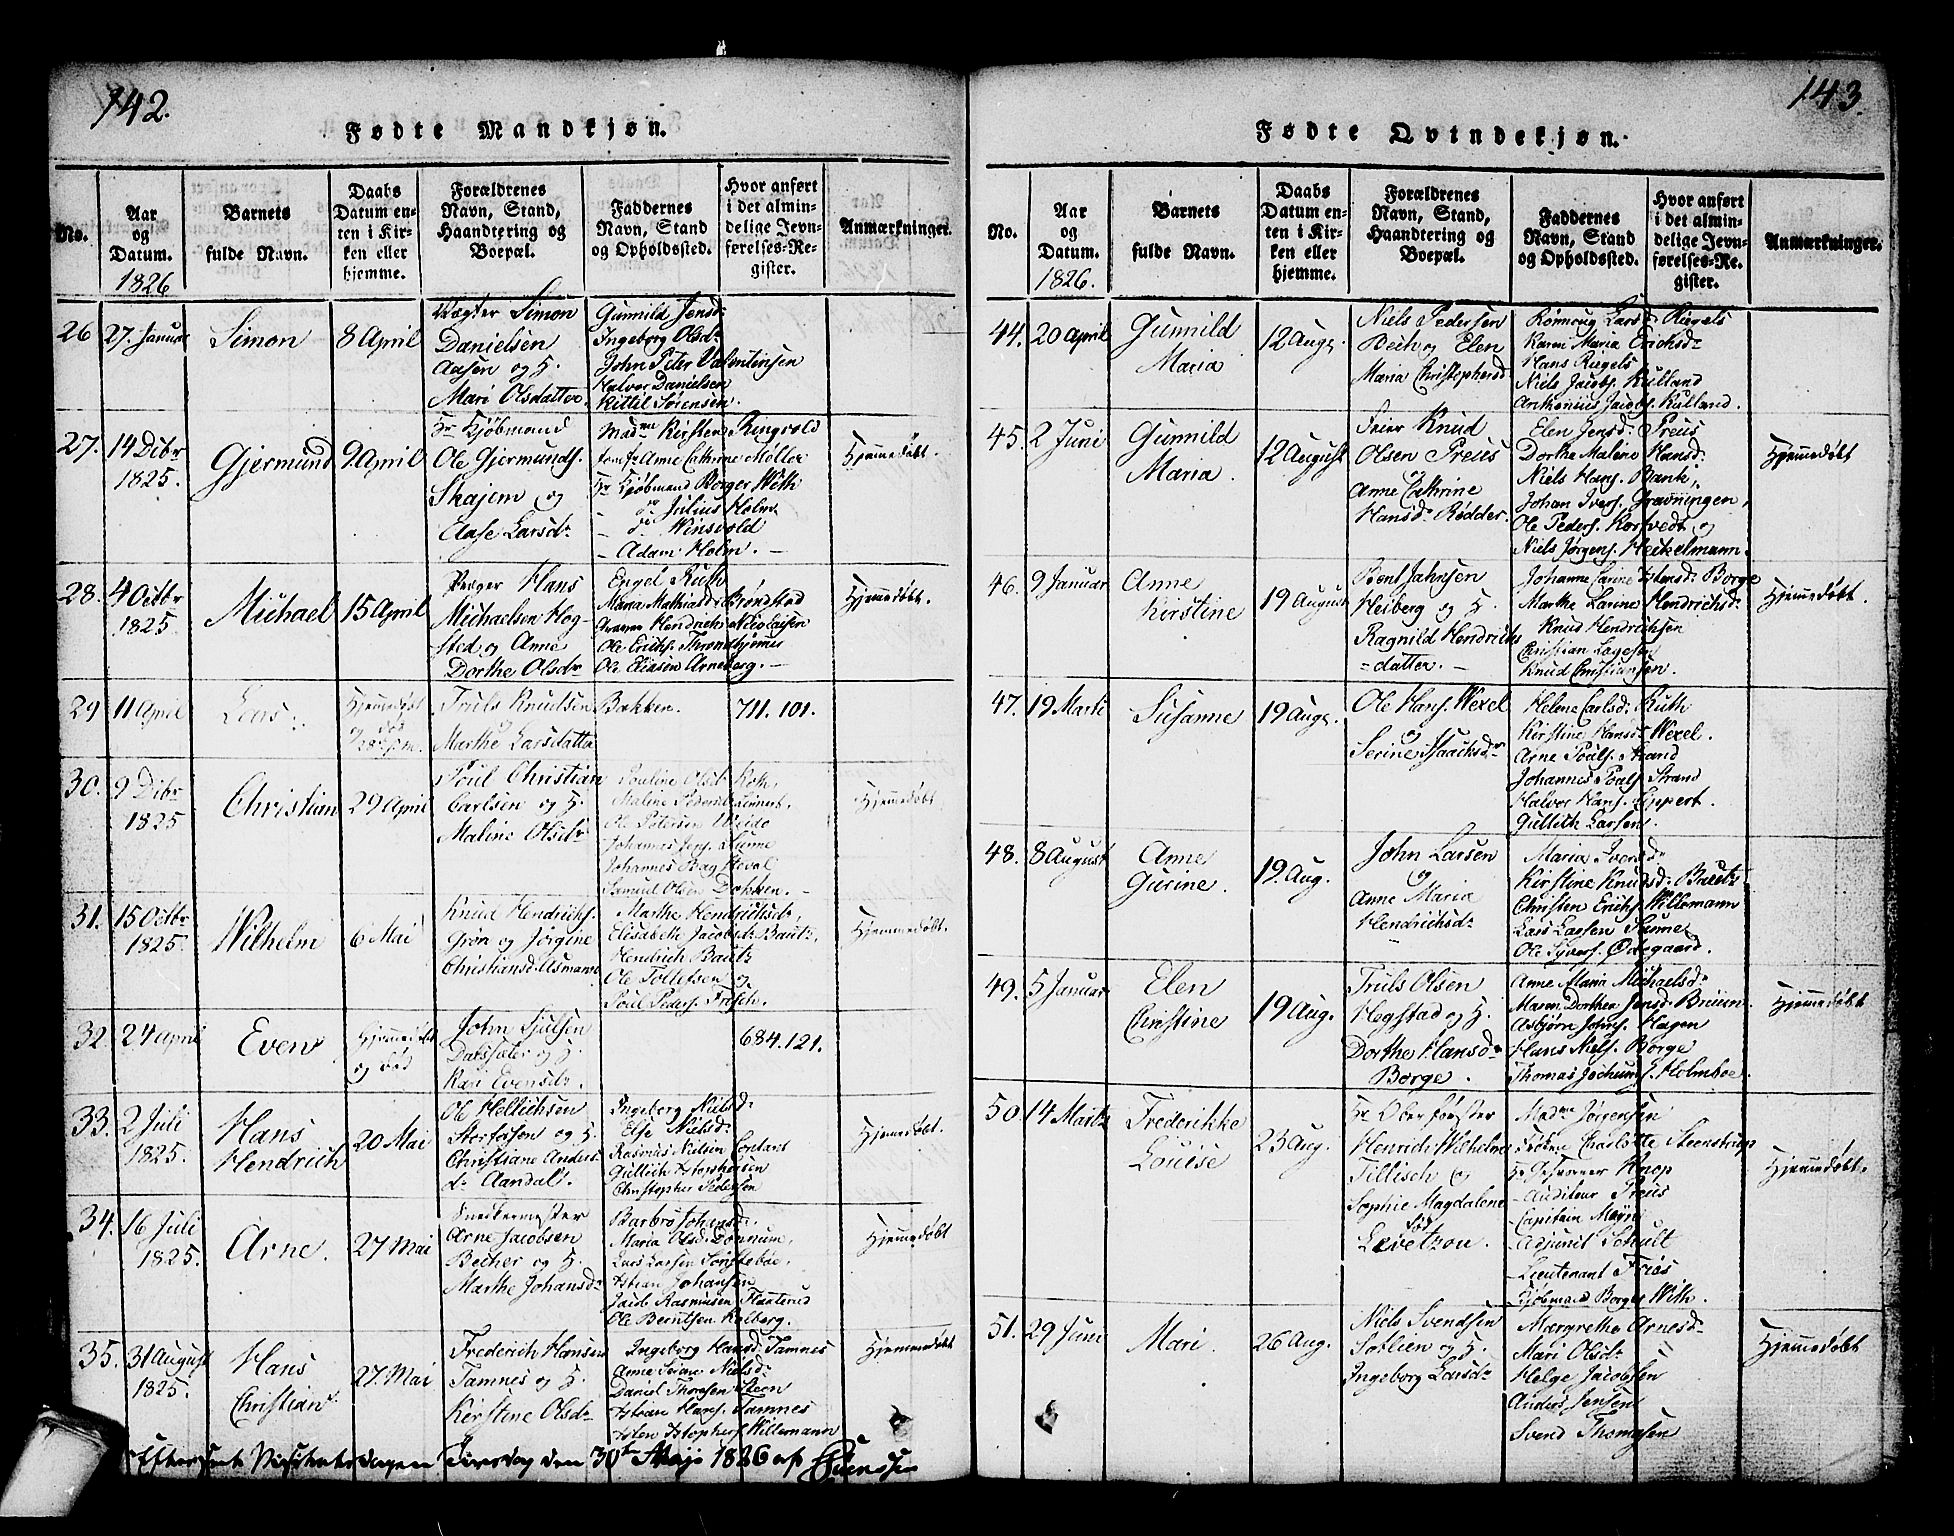 142.
Fødte Mandkjøn.
No.
Aar og Datum. 1826
Barnets fulde Navn.
Daabs Datum enten i Kirken eller hjemme.
Forældrenes Navn, Stand, Haandtering og Boepæl.
Faddernes Navn, Stand og Opholdssted.
Hvor anført i det almindelige Jevnførelses-Register.
Anmærkninger.
26 27. Januar Simon 8 April
Simon
Danielsen
Aasen og H.
Mari Olsdatter.
Gunnild Jensdr
Ingeborg Olsdr
John Peter Valentinsen
Halvor Danielsen
Kittil Sørensen.
27. 14 Dcbr 1825. Gjermund 9 April
Hr Kjøbmand
Ole Gjermunds.
Skajem og
Aase Larsdr
Madme Kirsten Ringvold
Jomfr Anne Cathrine Møller
Hr Kjøbmand Borger With
Julius Holm
Winsvold
- Adam Holm. -
Hjemmedøbt.
28. 4 Octbr 1825. Michael 15 April
Hans
Michaelsen Hog-
sted og Anne
Dorthe Olsdr
Engel Ruth
Maria Mathiasd: Brøndsted
Hendrich Nicolaisen
Ole Erichs. Throndhjemmer
Ole Eliasen Arneberg. -
Hjemmedøbt.
29 11 April Lars. Hjemmedøbt og død
Truls Knudsen Bakken.
og
Marthe Larsdatter
711. 101.
30. 9 Dcbr 1825 Christian 29 April
Poul Christian
Carlsen og H.
Maline Olsdr
Pauline Olsdr Roth,
Maline Pedersdr
Ole Petersen Weido
Johannes Jens. Lunne
Johannes Hovel
Samuel Olsen Dokken. -
Hjemmedøbt,
31. 15 Octbr 1825. Wilhelm 6 Mai
Knud Hendrichs.
Grøn og Jørgine
Christiansd. Asmann
Marthe Hendrichsdr,
Elisabeth Jacobsdr Bautz,
Hendrich Bautz
Ole Tollefsen og
Poul Peders. Frisch.
Hjemmedøbt.
32 24 April Even Hjemmedøbt og død
John Sjulsen
og H.
Kari Evensdr.
684. 121.
33. 2 Juli 1825. Hans Hendrich 20 Mai
Ole Hellichsen
Storfossen og H.
Christiane Anders-
dr Aandalt.
Ingeborg Nielsd:
Else Nielsd:
Rasmus Nielsen
Gullich
Christopher Pedersen
Hjemmedøbt.
34. 16 Juli 1825. Arne. 27 Mai
Snedkermester
Arne Jacobsen
Becher og H.
Marthe Johansdr
Barbro Johansd:
Maria Olsd: Donnum,
Lars Larsen
Johansen
Jacob Rasmusen Flaaterud
Ole Berntsen Kolberg.
Hjemmedøbt
35. 31 August 1825. Hans Christian 27. Mai
Frederich Hansen
Tamnes og H.
Kirstine Olsdr
Ingeborg Hansd: Tamnes
Anne Nielsd:
Daniel Thoresen Steen
Hans. Tamnes
Willemann
Hjemmedøbt
Tirsdag den 30te Maji 1826 af
143.
Fødte Qvindekjøn.
No.
Aar og Datum. 1826.
Barnets fulde Navn.
Daabs Datum enten i Kirken eller hjemme.
Forældrenes Navn, Stand, Haandtering og Boepæl.
Faddernes Navn, Stand og Opholdssted.
Hvor anført i det almindelige Jevnførelses-Register.
Anmærkninger.
44. 20 April Gunnild Maria 12 Aug.
Niels Pedersen
Bech og Elen
Maria Christophersd
Rønnoug Lars Riegels
Karen Maria Erichsdr
Hans Riegels
Niels Jacobs. Rulland
Anthonius Jacobs. Rulland.
45. 2 Juni Gunnild Maria. 12 August
Feier Knud
Olsen Preus
og
Anne Cathrine
Hansdr Rødder.
Elen Jensd: Preus
Dorthe Malene Hansd:
Niels Hans. Bank,
Johan Ivers. Gravningen,
Ole Peders. Korsvedt og
Niels Jørgens. Heckelmann.
Hjemmedøbt
46. 9 Januar Anne Kirstine 19 August
Bent Jahnsen
Heiberg og H.
Ragnild Hendrichs
=datter. -
Johanne Borge
Marthe Larine Hendrichsdr
Knud Hendrichsen
Christian Lagesen
Knud Christiansen.
Hjemmedøbt.
47. 19 Marti Susanne 19 Aug.
Ole Hans. Wexel
og
Serine Isaachsdr
Helene Carlsd: Ruth
Kirstine Hansdr Wexel.
Arne Poals. Strand
Johannes Poals. Strand
Halvor Hans. Eppert.
Gullith Larsen.
48. 8 August Anne Gurine. 19. Aug.
John Larsen
og
Anne Maria
Hendrichsdr
Maria Iversd:
Kirstine Knudsd: Bautz
Christen Erichs. Willemann
Lars Larsen Lunne,
Ole Syvers. Ødegaard.
49. 5 Januar Elen Christine 19 Aug.
Truls Olsen
Hegstad og H.
Dorthe Hansdr
Borge.
Anne Maria Michaelsdr
Maren Dorthea Jensd: Bruun
Asbjørn Johns. Hagen
Hans Niels. Borge
Thomas Jochums. Holmboe.
Hjemmedøbt
50. 14 Marti Frederikke Louise 23 Aug.
Hr Oberførster
Henrich Wilhelm
Tillisch og
Sophie Magdalene
fød
Levetzou.
Madme Jørgensen
Frøken Charlotte Steenstrup
Knop
- Auditeur Preus
- Capitain Meyn
- Adjunct Schult
- Lieutenant Friis
- Kjøbmand Borger With.
Hjemmedøbt.
51. 29 Juni Mari. 26 Aug.
Niels Svendsen
Sollien og H.
Ingeborg Larsdr
Margrethe Arnesd:
Mari Olsdr
Helge Jacobsen
Anders Jensen
Svend Thomasen
Hjemmedøbt